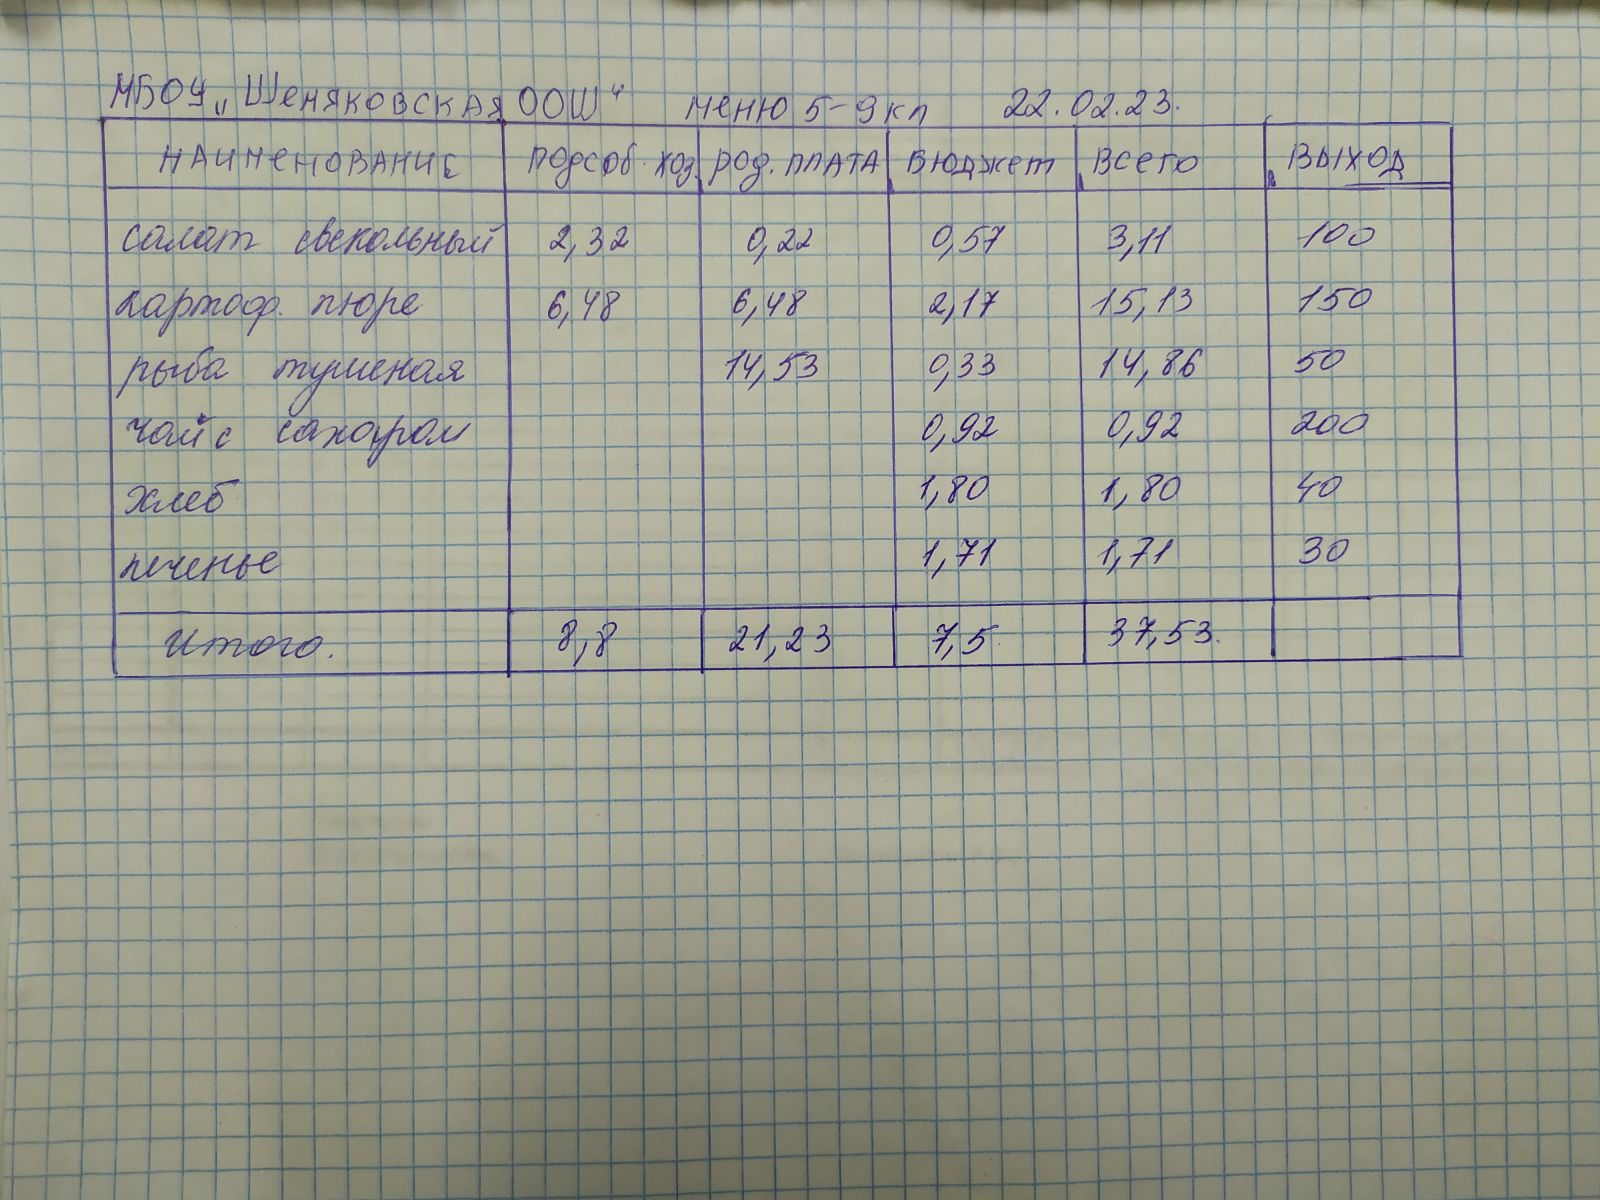 МБОУ „Шеняковская ООШ“ меню 5-9 кл 22.02.23.
наименование подсоб. хоз. род. плата бюджет всего выход
салат свекольный 2,32 0,22 0,57 3,11 100
картоф. пюре 6,48 6,48 2,17 15,13 150
рыба тушеная 14,53 0,33 14,86 50
чай с сахаром 0,92 0,92 200
хлеб 1,80 1,80 40
печенье 1,71 1,71 30
итого. 8,8 21,23 7,5 37,53.